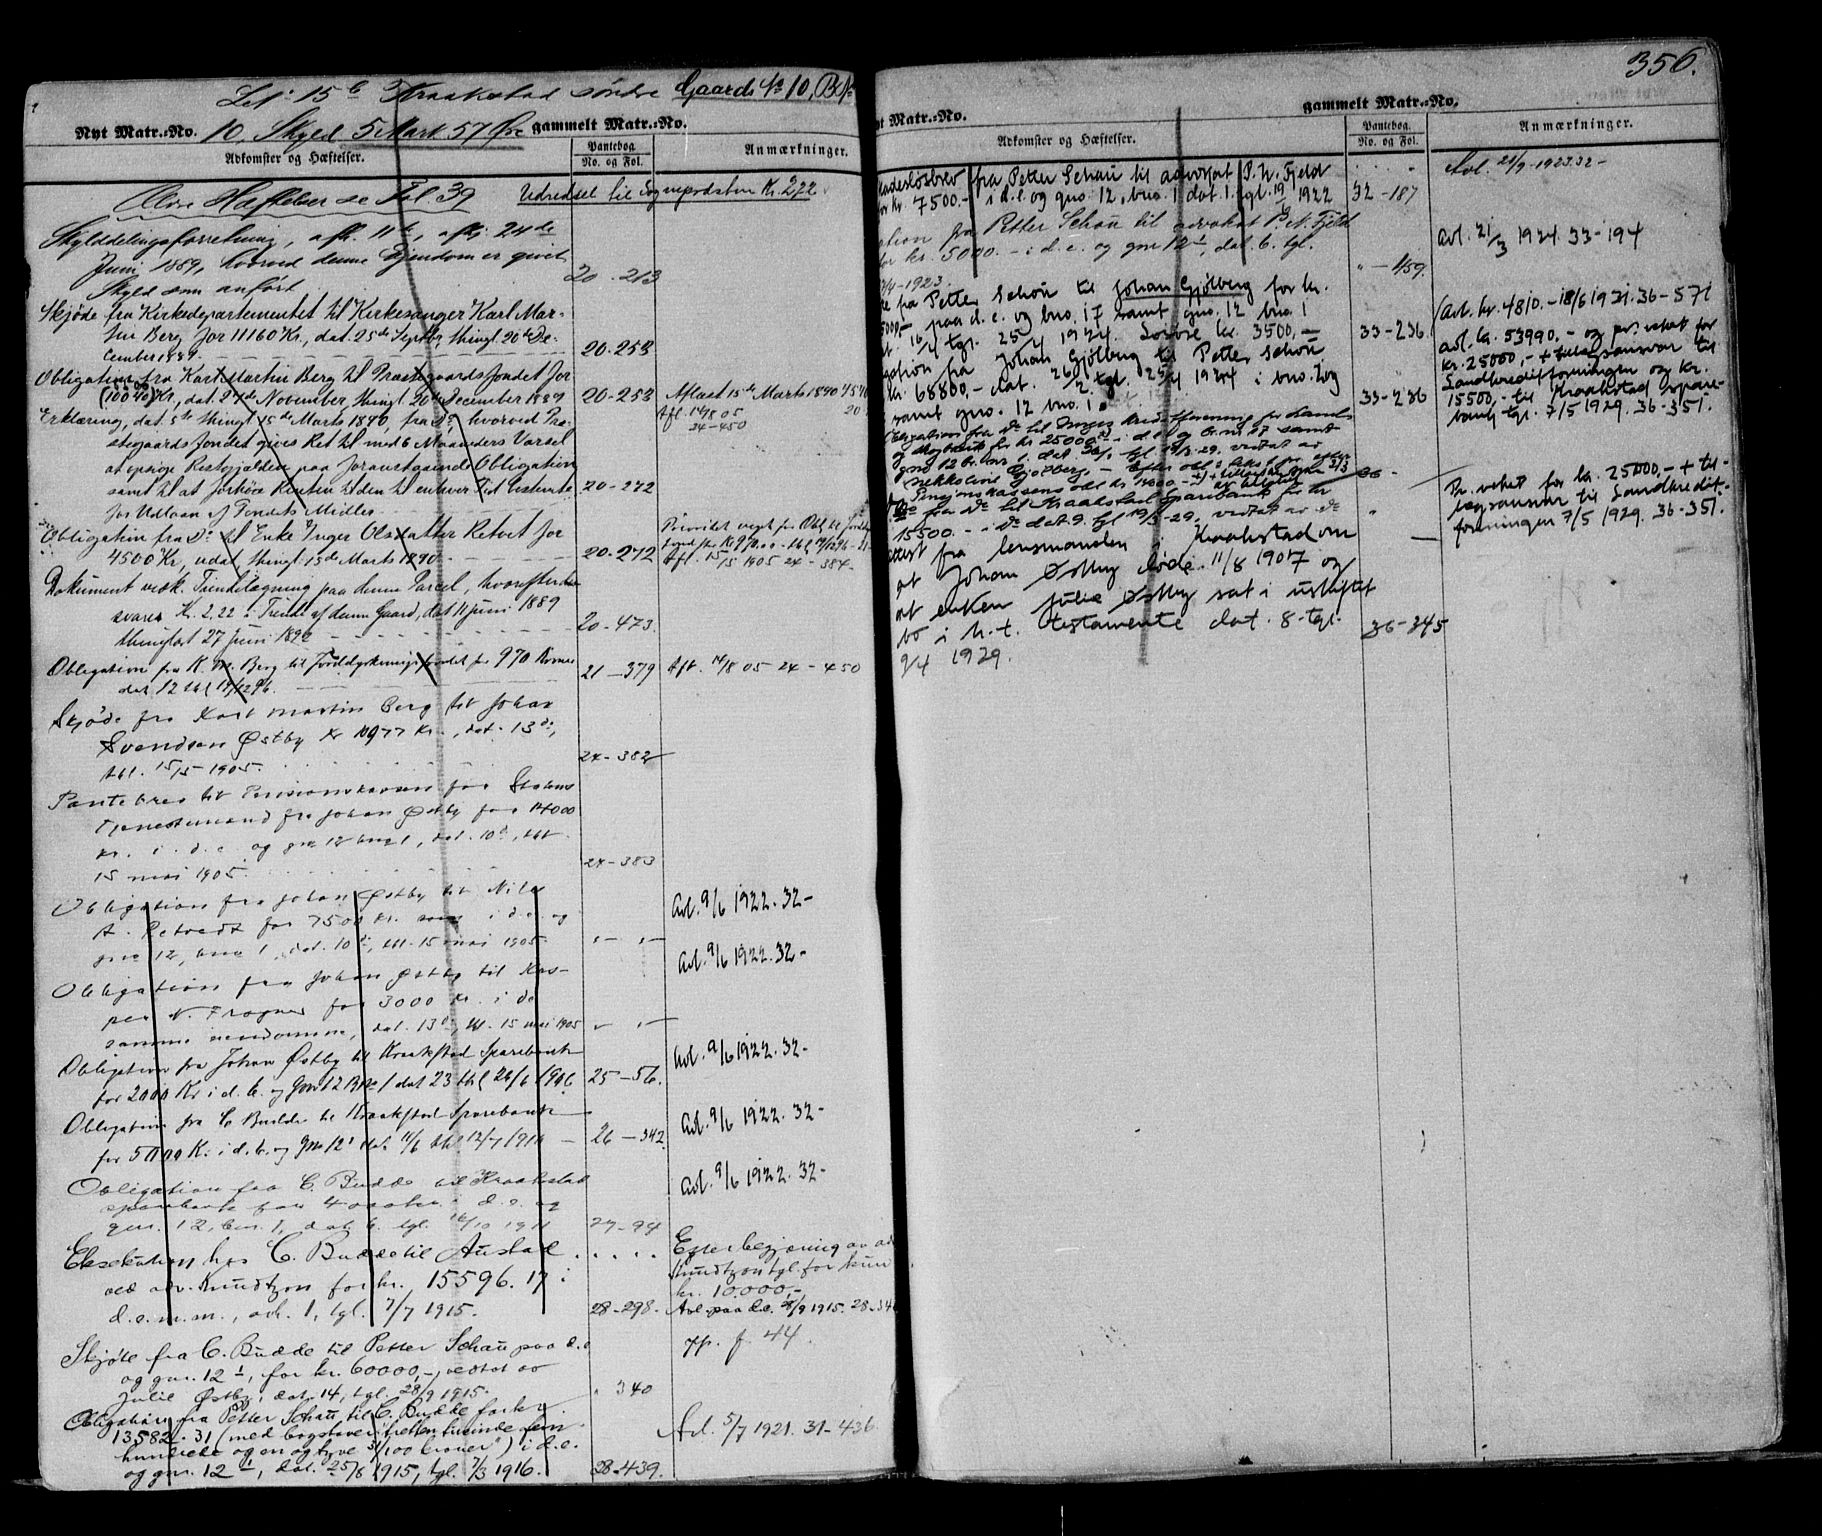 356.
Let: 15 b Kraakestad söndre Gaards No 10, B No
Nyt Matr.-No. 10, Skyld 5 Mark 57 Øre gammelt Matr.-No.
Adkomster og Hæftelser.
Pantebog
No. og Fol.
Anmærkninger.
Ældre Hæftelser se Fol. 39
Udredsel til Sognepræsten Kr. 2,22
Skylddelingsforretning, afh. 11te, afhj. 24de
Juni 1889, hvorved denne Ejendom er givet
Skyld som anført
20 - 213
Skjøde fra Kirkedepartementet til Kirkesanger Karl Mar-
tin Berg for 11160 Kr, dat. 25de Septbr, thingl. 20de De-
cember 1889.
20-253
Obligation fra Karl Martin Berg til Præstegaardsfondet for
Kr, dat. 27de November thingl. 20de December 1889
20-253 Aflæst 15de Marts 1890
Afl. 14/8 05
24-450
Erklæring, dat. 5te thingl. 15de Marts 1890, fra do, hvorved Præ-
stegaardsfondet gives Ret til med 6 Maaneders Varsel
at opsige Restgjælden paa foranstaaende Obligation
samt til at forhøie Renten til den til enhver Tid bestemte
for Udlaan af Fondets Midler
20-272
Obligation fra Do til Enke Inger Olsdatter Retvet for
4500 Kr, udat, thingl. 15de Marts 1890
20-272
Afl. 15/5 1905 24-384-
Dokument vedk. Tiendelægning paa denne Parcel, hvorefter der
svares Kr. 2,22 i Tiende af denne Gaard, dat. 11 Juni 1889
thinglæst 27 Juni 1892
20-473.
Obligation fra K. M. Berg til Jorddyrkningsfondet for 970 Kroner
dat. 12 thl 19/12 96.
21-379 Afl. 14/8 05 24-450
Skjøde fra Karl Martin Berg til Johan
Svendsen Østby for 10977 Kr., dat. 13de,
thl. 15/5-1905.
24-382
Pantebrev til Pensionskassen for Statens
Tjenestemænd fra Johan Østby for 14000
kr. i d. e og gno 12 bno 1, dat. 10de, thl.
15 mai 1905.
24-383
Obligation fra Johan Østby til Nils
A. Retvedt for 7500 kr. som i d. e. og
gno 12, bno 1, dat. 10de, thl. 15 mai 1905.
Avl. 9/6 1922. 32-
Obligation fra Johan Østby til Kas-
per N. Frogner for 3000 Kr. i de
samme eiendomme, dat. 13de, thl. 15 mai 1905
Avl. 9/6 1922. 32-
Obligation fra Johan Østby til Kraakstad Sparebank
for 2000 Kr i d. E. og Gno 12 Bno 1 dat 23 thl 26/6 1906
25-56. Avl. 9/6 1922. 32-
Obligation fra C Budde til Kraakstad Sparebank
for 5000 Kr. i d. E. og Gno 12 1 dat. 11/6 thl 12/7 1910
26-342 Avl. 9/6 1922. 32-
Obligation fra C. Budde til Kraakstad
sparebank for 4000 kr. i d. e. og
gnr. 12, bnr. 1, dat. 6. tgl. 16/10 1911
27-94 Avl. 9/6 1922. 32-
Eksekution hos C. Budde til Austad
ved adv. Knudtzon for kr. 15596.17 i
d. e. m. m., avh. 1, tgl. 7/7 1915.
28-298.
Efter begjæring av adv
Knudtzon tgl. for kun
kr. 10.000,-
Avl. paa d.e. 28/9 1915. 28-340
Skjøte fra C. Budde til Petter Schau paa d. e
og gnr. 12 1, for kr. 60000,-, vedtat av
Julie Østby, dat. 14, tgl. 28/9 1915.
" 340
jfr. f. 44.
Obligation fra Petter Schau til C. Budde for kr.
13582.31 (med bogstaver "tretten tusinde fem
hundrede og en og tyve 31/100 kroner") i d. e.
og gnr. 12 1, dat. 25/8 1915, tgl. 7/3 1916.
28-439. Avl. 5/7 1921. 31-436
Nyt Matr.-No.
gammelt Matr.-No.
Adkomster og Hæftelser.
Pantebog.
No. og Fol.
Anmærkninger.
Skadesløsbrev fra Petter Schau til advokat P. N. Fjeld
for kr. 7500.- i d. e. og gno. 12, bno. 1 dat. 1. tgl. 19/6 1922
32-187
Avl. 21/9-1923.32-
Obligation fra Petter Schau til advokat P. N. Fjeld
for kr. 5000.- i d. e. og gnr 12 1, dat. 6. tgl.
1923.
" - 459.
Avl. 21/3 1924. 33-194
fra Petter Schau til Johan Gjølberg for kr.
paa d. e. og bno. 17 samt gno. 12 bno. 1
dat. 16/4 tgl. 25/4 1924. Løsøre kr. 3500,-
33-236.
Obligation fra Johan Gjølberg til Petter Schau
kr. 68800,- dat. 26/2 tgl. 25/4 1924 i bno. 1 og
samt gno. 12 bno. 1.
33-236
Avl. kr. 4810.- 18/6 1921. 36-571
Avl. kr. 53990.- og pr. veket for
kr. 25000,- + tillægsansvar til
Landkreditforeningen og kr.
15500,- til Kraakstad spare-
bank tgl. 7/5 1929. 36-351.
Obligation fra do til Norges Kreditforening for Land-
og Skogbruk for kr 25000 i d. e. og b.nr 17 samt
gnr 12 br. nr 1. dat. tgl 19/3-29, vedtat av
Pensjonskassens obl kr 14000.-
fra Do til Kraakstad Sparebank for kr
15500.- i Do dat. 9. tgl 19/3-29, vedtat av do
Pr. veket for kr. 25000,- + til-
lægsansvar til Landkredit-
foreningen 7/5 1929. 36-351.
Attest fra lensmanden i Kraakstad om
at Johan Østby døde 11/8 1907 og
at enken Julie Østby sat i uskiftet
bo i h.t. testamente dat. 8. tgl.
9/4 1929.
36-345